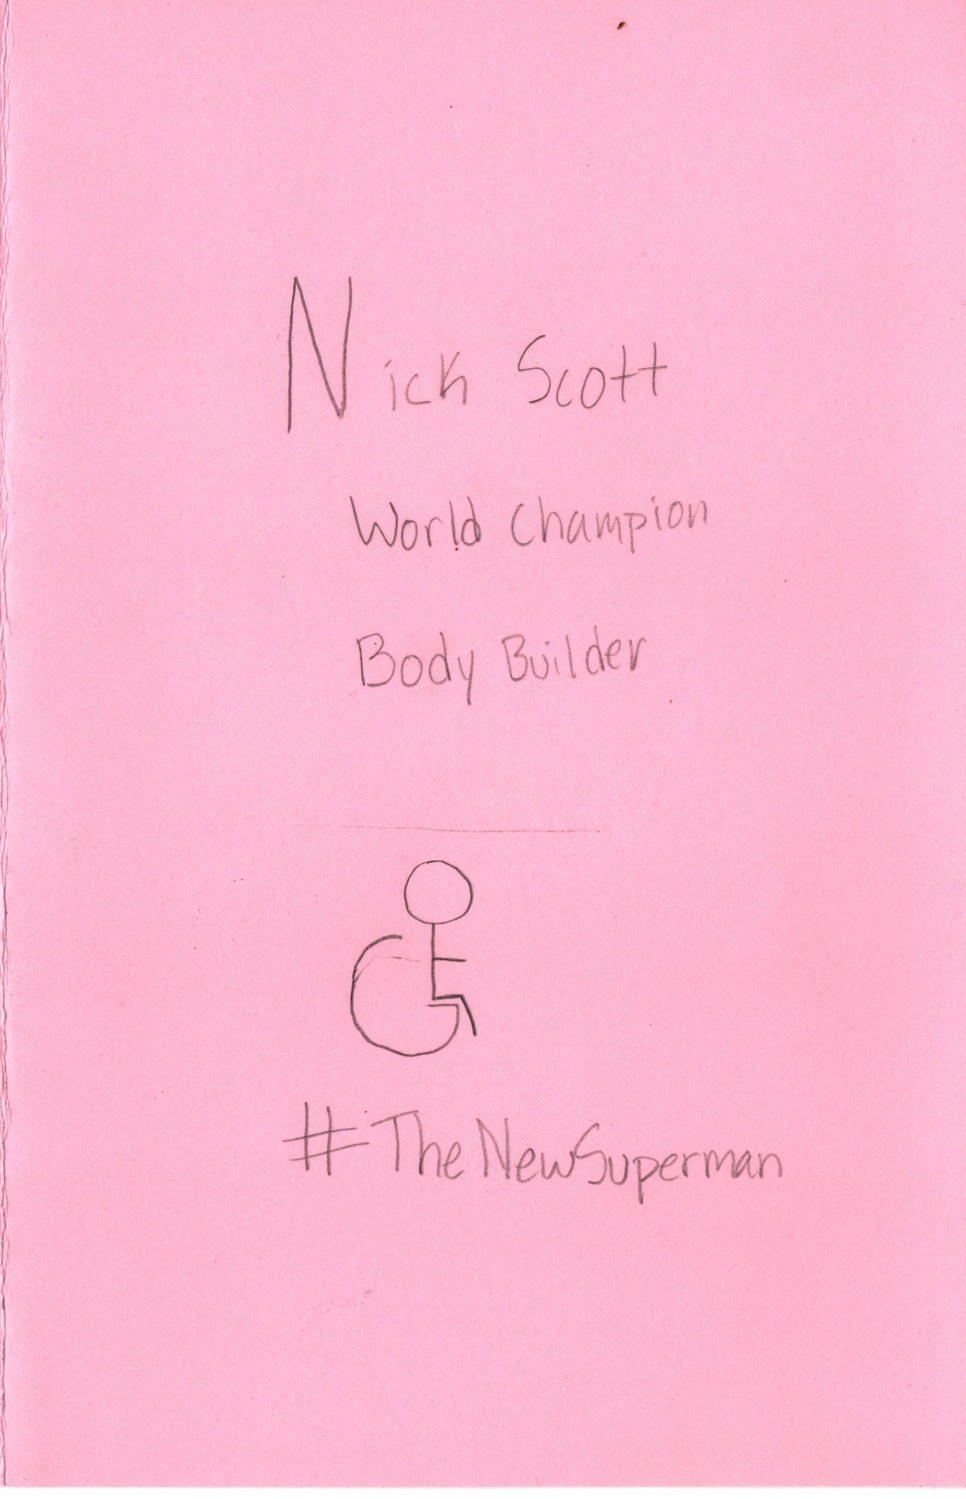 Nick Scott
World Champion
Body Builder
#TheNewSuperman